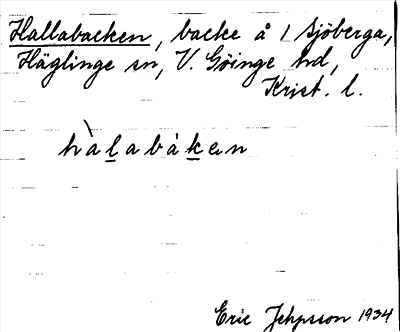 Hallabacken, backe å 1 Sjöberga,
Häglinge sn, V. Göinge hd,
Krist. l.
hàlabàken
Eric Jehpsson 1934